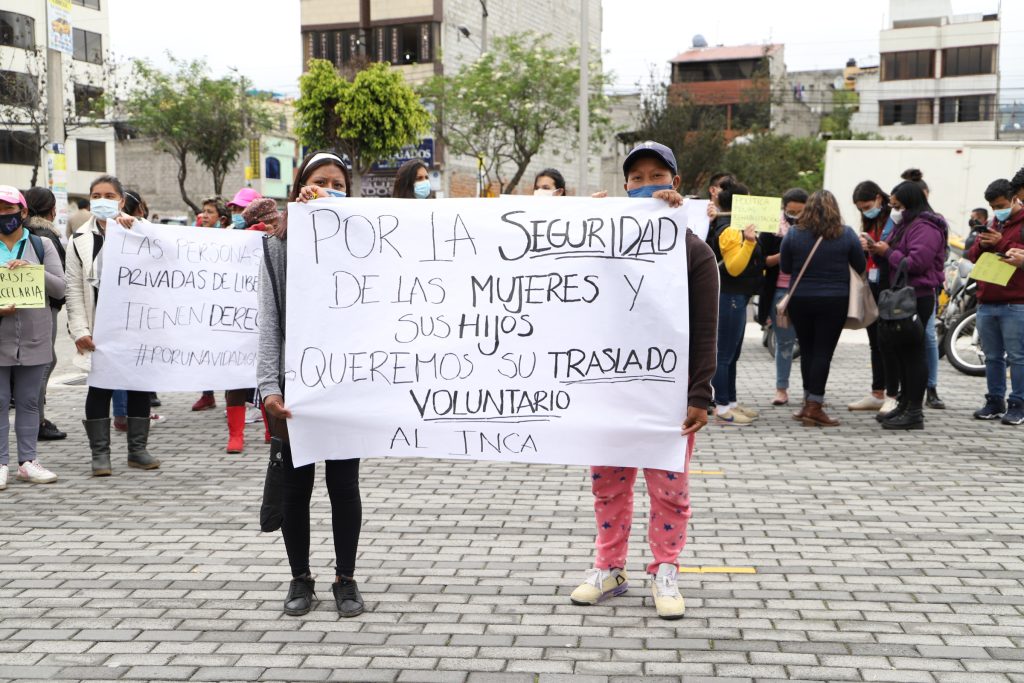 POR LA SEGURIDAD
DE LAS MUJERES Y
SUS HIJOS
QUEREMOS SU TRASLADO
VOLUNTARIO
AL INCA
LAS PERSONAS
PRIVADAS DE LIBE
TIENEN DEREC
#PORUNAVIDADIGN
CRISIS
CELARIA
POLITICA